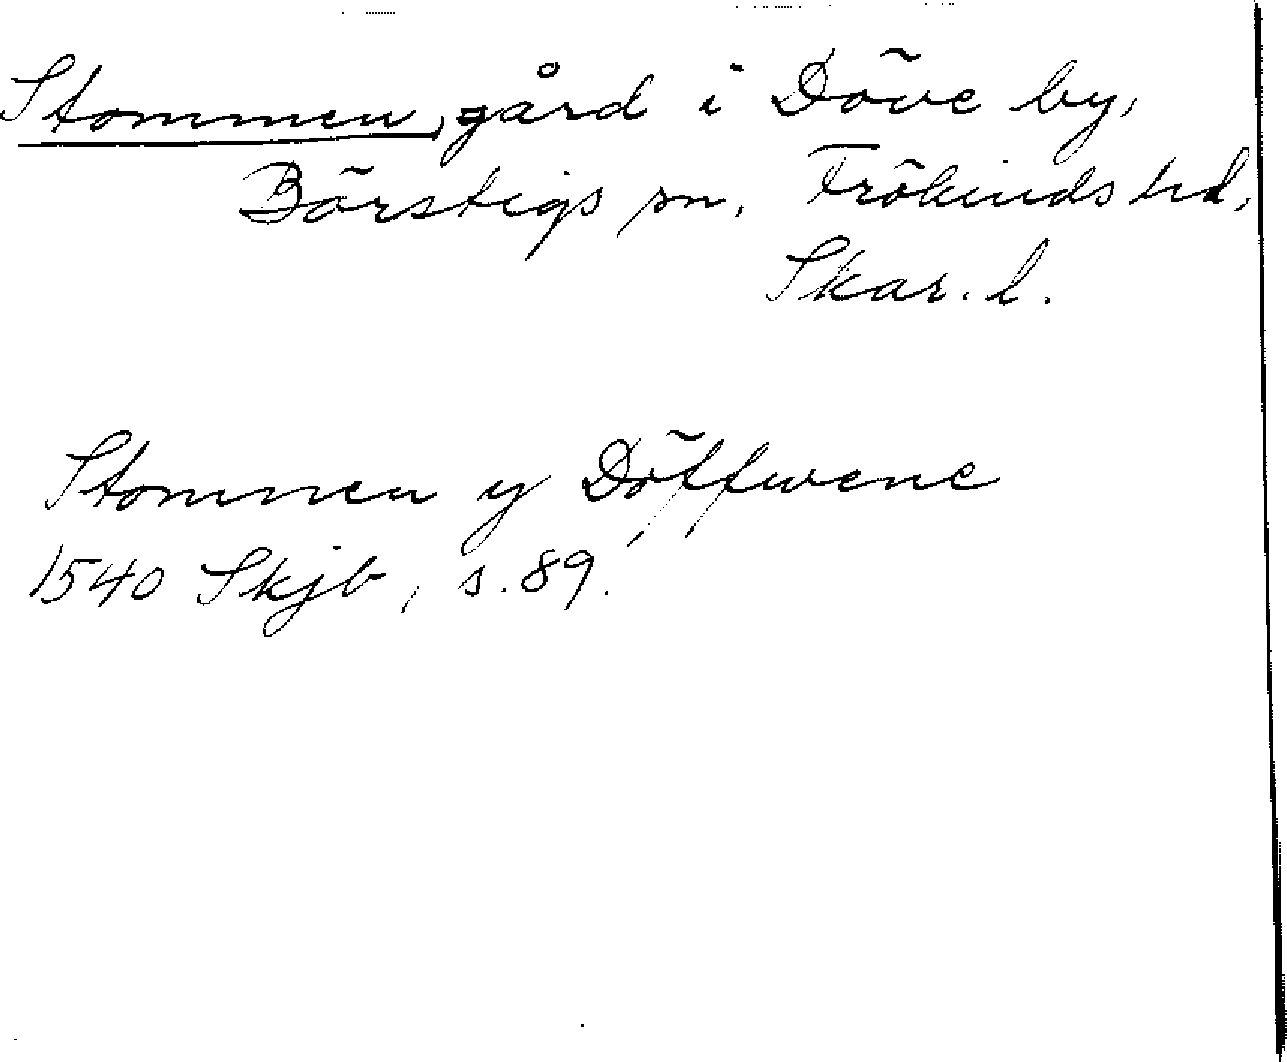 Stommen, gård i Döve by,
Börstigs sn, Frökinds hd,
Skar. l.
Stommen y Döffwene
1540 Skjb, s. 89.